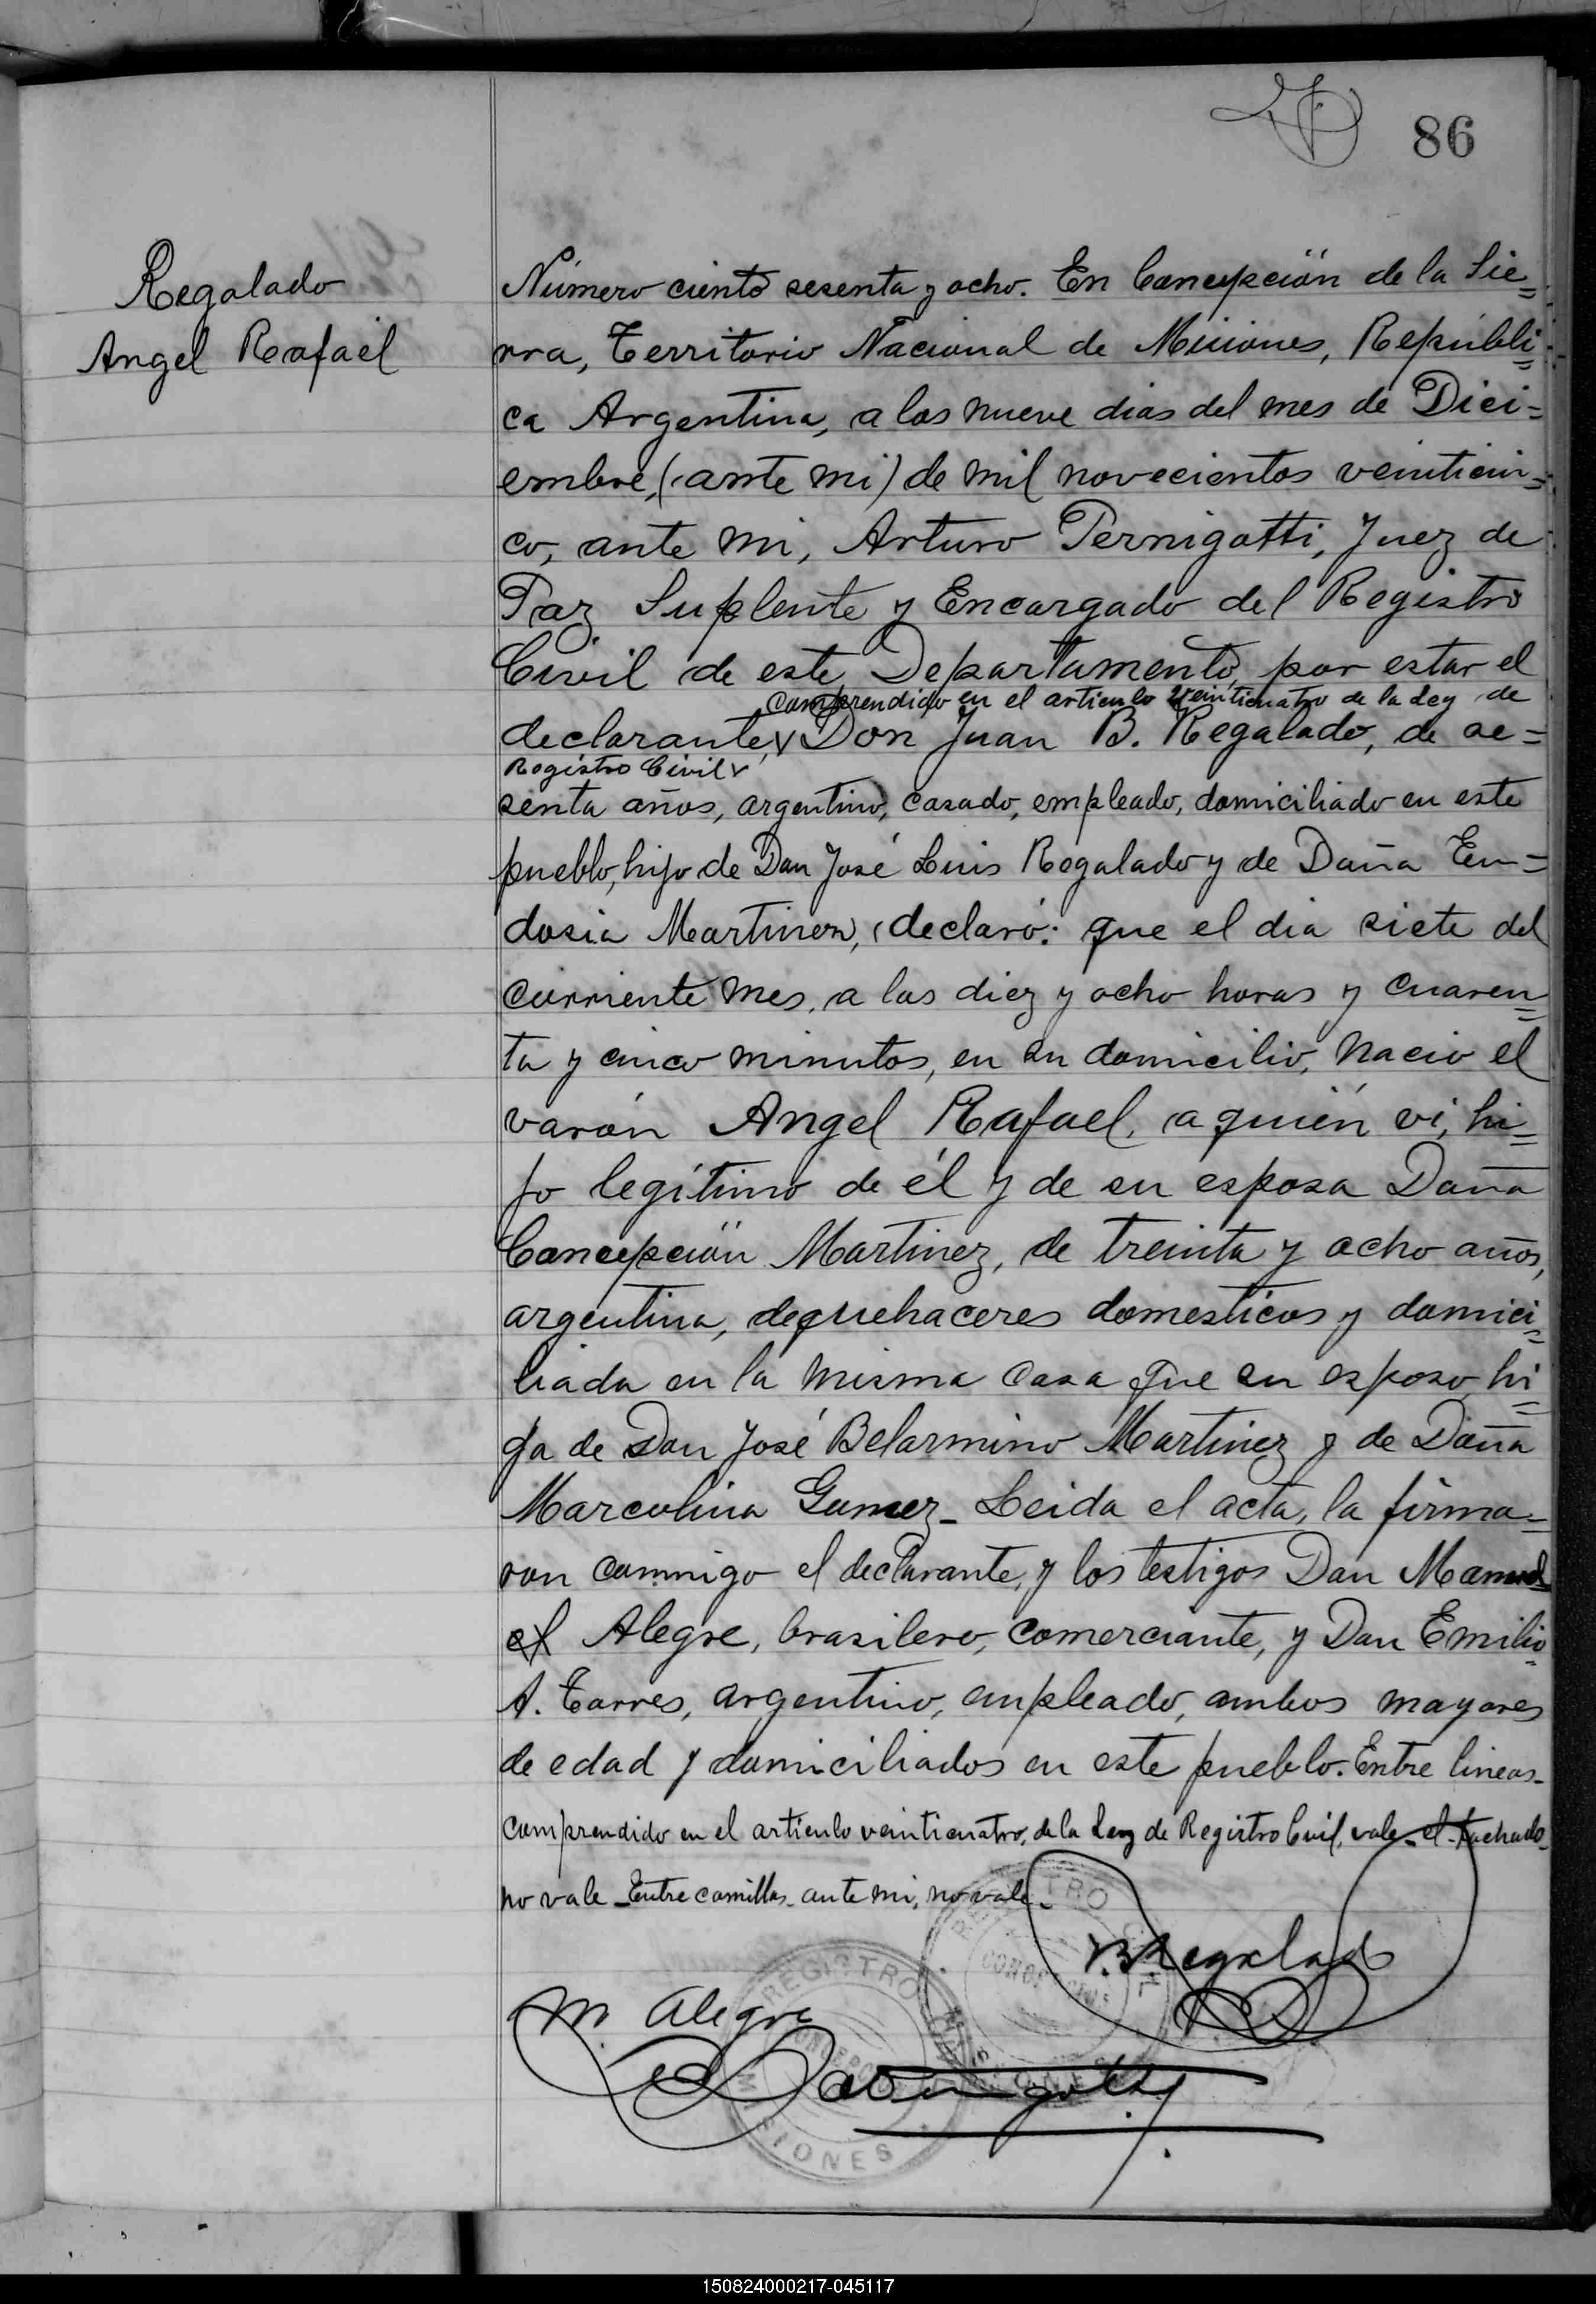 86
Regalado
Angel Rafael
Número ciento sesenta y ocho. En Concepción de la Sie=
rra, Territorio Nacional de Misiones, Repúbli=
ca Argentina, a los nueve dias del mes de Dici=
embre, (ante mi) de mil novecientos veinticin=
co, ante mi, Arturo Pernigotti, Juez de
Paz Suplente y Encargado del Registro
Civil de este Departamento, por estar el
comprendido en el articulo veinticuatro de la Ley de
declarante, Don Juan B. Regalado, de se=
Registro Civil
senta años, argentino, casado, empleado, domiciliado en este
pueblo, hijo de Don José Luis Regalado y de Doña Eu=
dosia Martinez, declaró: que el dia siete del
corriente mes, a las diez y ocho horas y cuaren=
ta y cinco minutos, en su domicilio, nacio el
varón Angel Rafael, a quién vi, hi=
jo legítimo de él y de su esposa Doña
Concepción Martinez, de treinta y ocho años,
argentina, de quehaceres domesticos y domici=
liada en la misma casa que su esposo, hi=
ja de Don José Belarmino Martinez y de Doña
Marcolina Gomez_ Leida el acta, la firma=
ron conmigo el declarante, y los testigos Don Manuel
el Alegre, brasilero, comerciante, y Don Emilio
A. Torres, argentino, empleado, ambos mayores
de edad y domiciliados en este pueblo. Entre lineas_
comprendido en el articulo veinticuatro, de la Ley de Registro Civil, vale_ el_ tachado_
no vale_ Entre comillas_ ante mi, no vale_
REGISTRO CIVIL
CONCEPCION
MISIONES
J.B. Regalado
M. Alegre
REGISTRO CIVIL
CONCEPCION
MISIONES
150824000217-045117